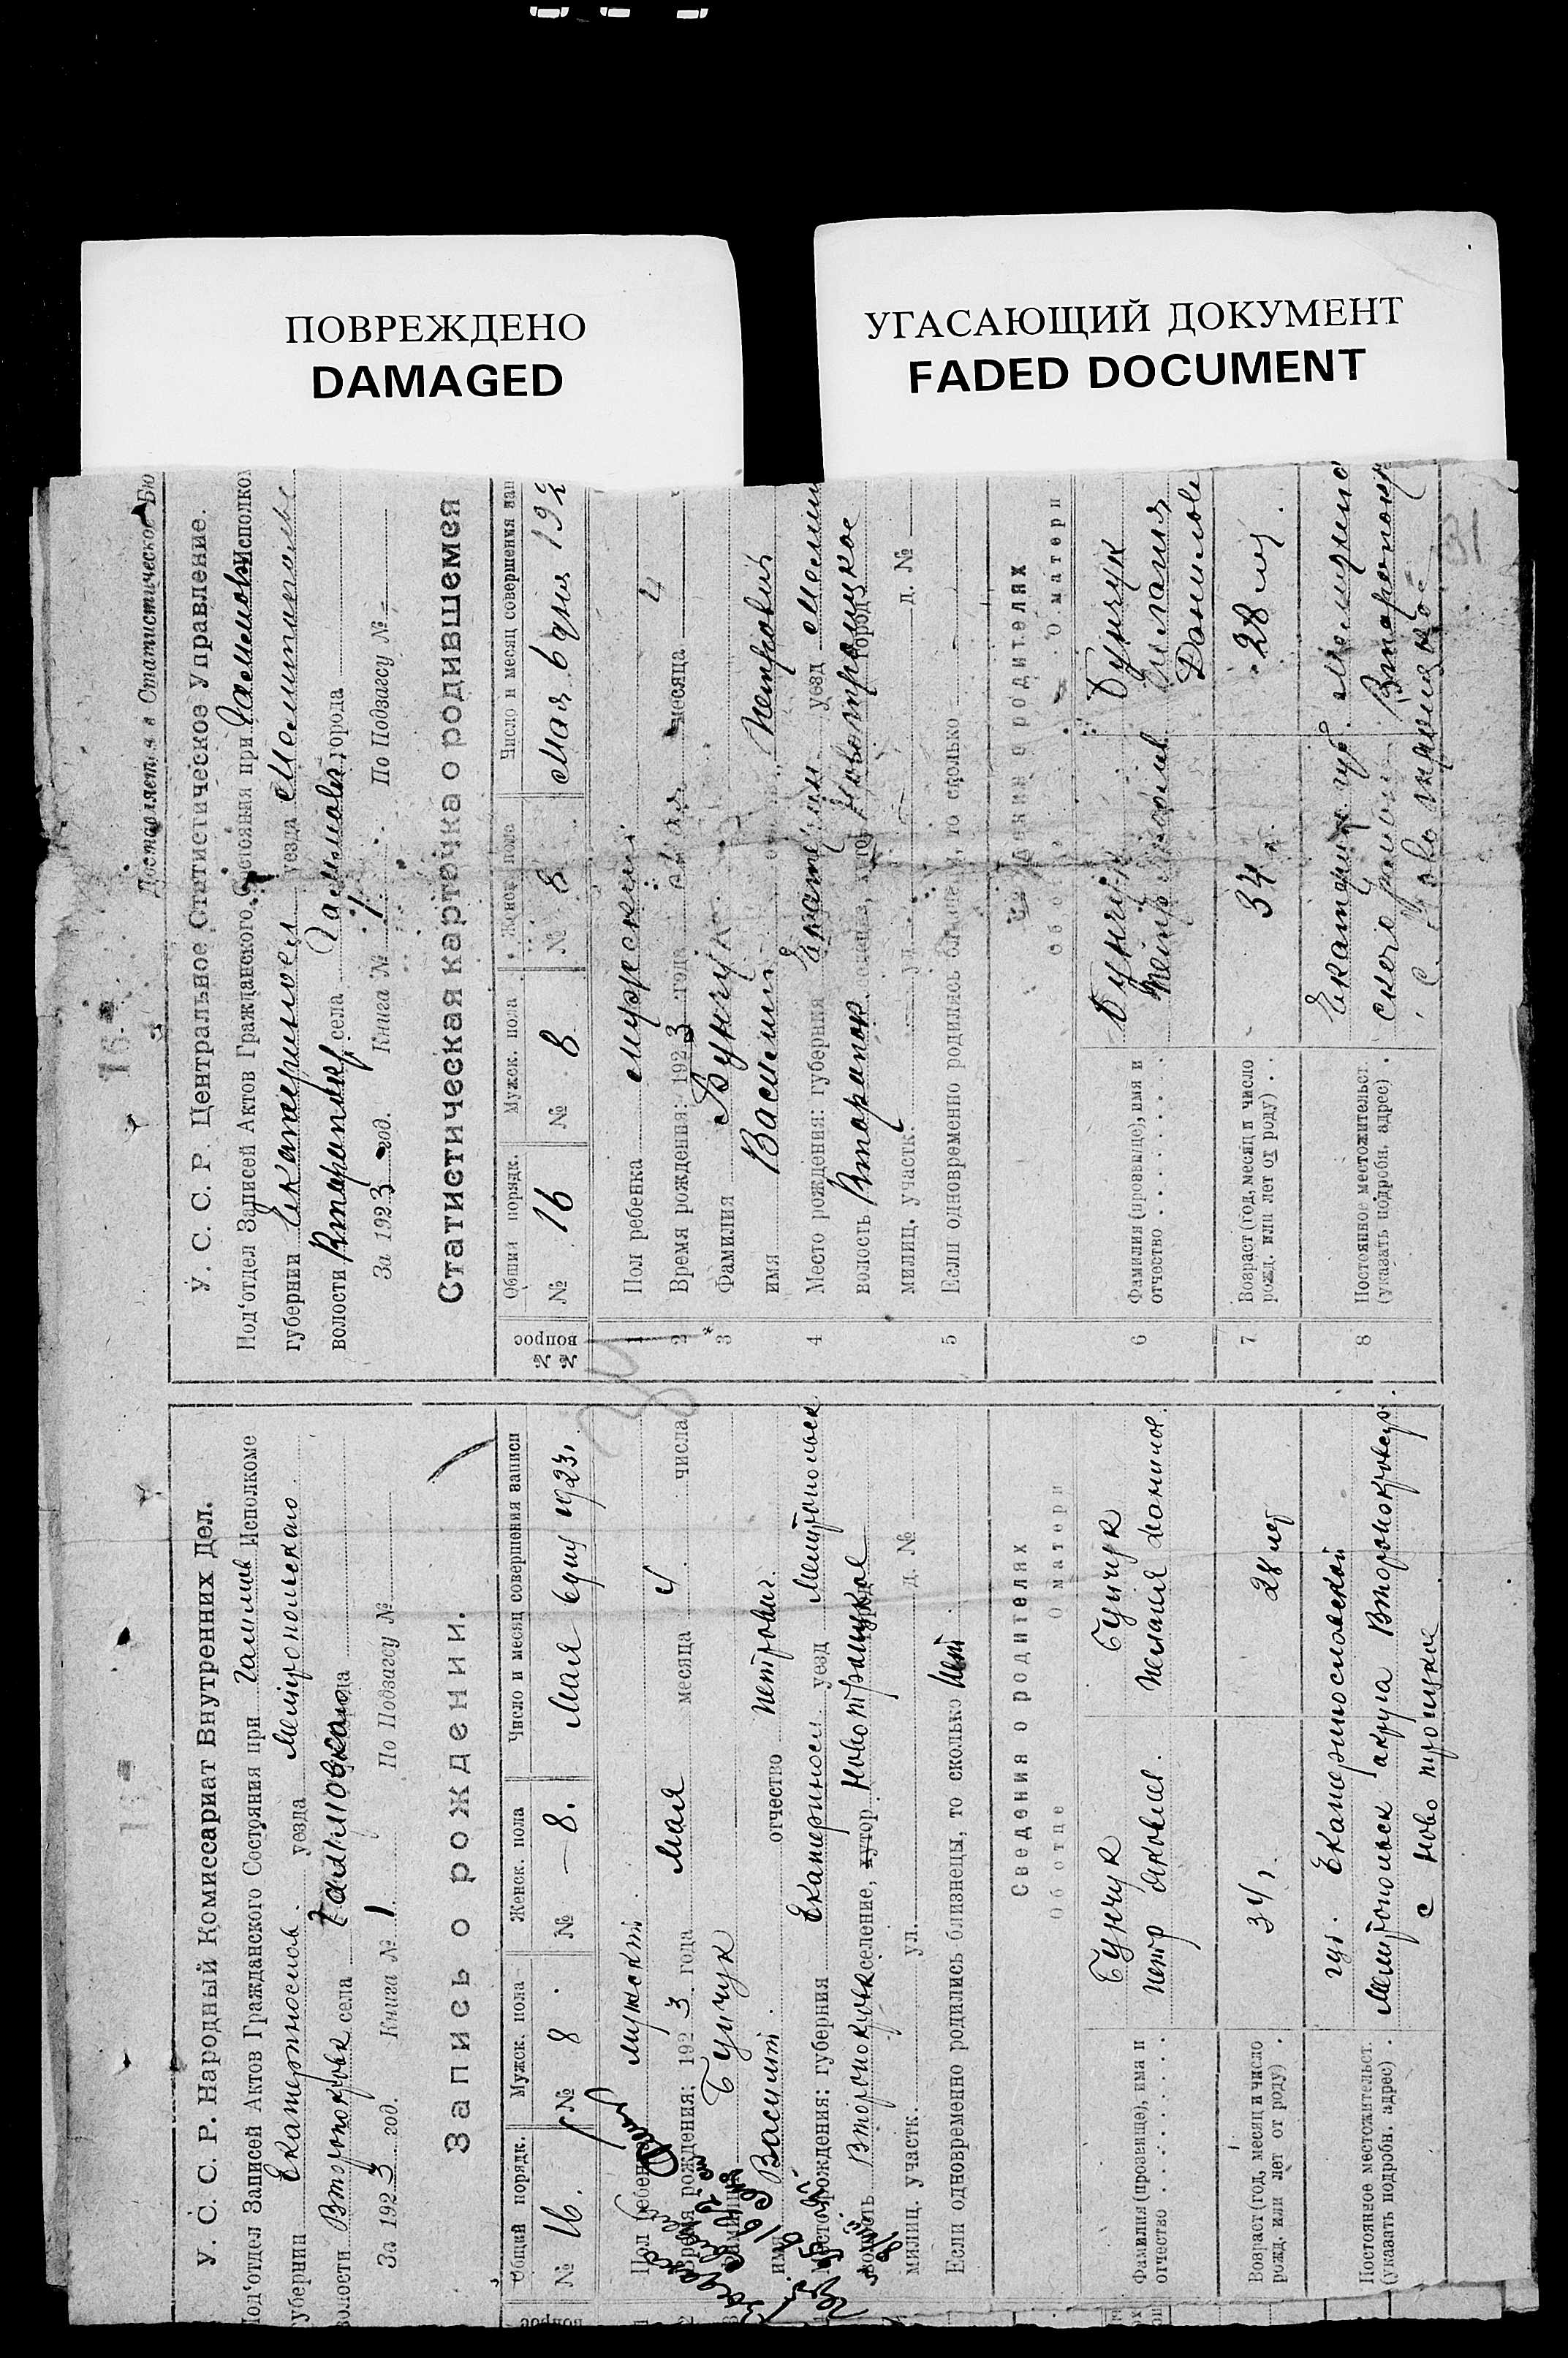 ПОВРЕЖДЕНО
DAMAGED
УГАСАЮЩИЙ ДОКУМЕНТ
FADED DOCUMENT
16
У. С. С. Р. Народный Комиссариат Внутренних Дел.
Под'отдел Записей Актов Гражданского Состояния при Гаммов Исполкоме
губернии Екатеринослав. уезда Мелитопольского
волости Второпокровск села Гаммовка города
За 1923 год. Книга № 1. По Подзагсу №
Запись о рождении.
вопрос Общий порядк. Мужск. пола Женск. пола Число и месяц совершения записи
№ 16. № 8. № 8. Мая 6 дня 1923.
Пол ребенка мужской.
Время рождения: 1923 года Мая месяца 4 числа
Фамилия Бунчук
имя Василий. отчество Петрович.
Место рождения: губерния Екатеринослав уезд Мелитопольск
волость Второпокровск селение, хутор Новотроицкое город
милиц. участк. ул. д. №
Если одновременно родились близнецы, то сколько Нет.
Сведения о родителях
Об отце О матери
Фамилия (прозвище), имя и отчество
Бунчук
Петр Яковлев.
Бунчук
Мелания Данилов.
Возраст (год, месяц и число рожд. или лет от роду)
34.
28 лет
Постоянное местожительст. (указать подробн. адрес)
губ. Екатеринославской
Мелитопольск округа Второпокровск.
с Ново троицкое
16
Доставляется в Статистическое Бю
У. С. С. Р. Центральное Статистическое Управление.
Под'отдел Записей Актов Гражданского Состояния при Гаммовк Исполком
губернии Екатеринослав уезда Мелитопольс
волости Второпокр. села Гаммовка города
За 1923 год. Книга № 1. По Подзагсу №
Статистическая карточка о родившемся
№№ вопрос Общий порядк. Мужск. пола Женск. пола Число и месяц совершения зап
№ 16 № 8 № 8 Мая 6 дня 192
1 Пол ребенка мужской
2 Время рождения: 1923 года мая месяца 4
3 Фамилия Бунчук
имя Василий Петрович
4 Место рождения: губерния Екатерин уезд Мелит
волость Второпок селение, хутор Новотроицкое город
милиц. участк. ул. д. №
5 Если одновременно родились близнецы, то сколько
Сведения о родителях
Об отце О матери
6 Фамилия (прозвище), имя и отчество
Бунчук
Петр Яковлев
Бунчук
Мелания
Данилов
7 Возраст (год, месяц и число рожд. или лет от роду)
34 л.
28 лет.
8 Постоянное местожительст. (указать подробн. адрес)
Екатерин губ. Мелитопо
Второпокр
с. Ново троицкое
31